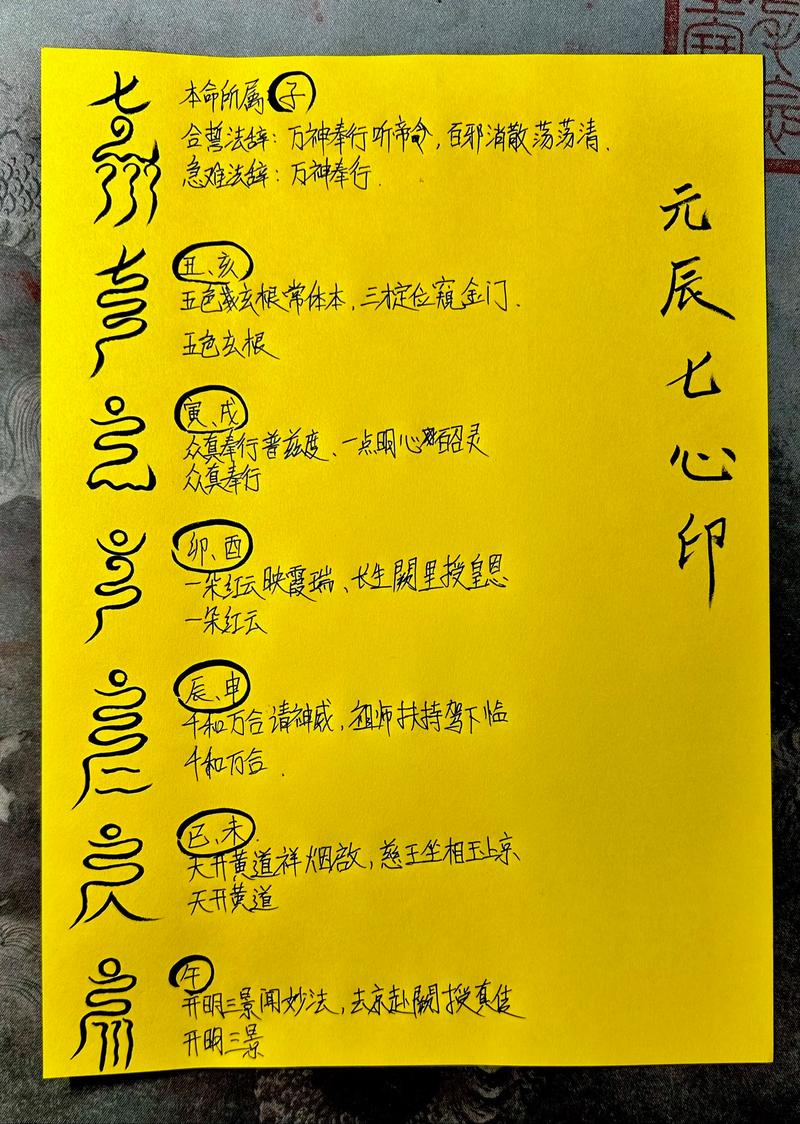 元辰七心印
本命所属 子
合誓法辞：万神奉行听帝令，百邪消散荡荡清．
急难法辞：万神奉行．
丑、亥
五色玄根常体本，三才定位窥金门．
五色玄根
寅、戌
众真奉行普兹度、一点明心召灵
众真奉行
卯、酉
一朵红云映霞瑞、长生阙里授皇恩
一朵红云
辰、申
千和万合请神威，祖师扶持驾下临
千和万合．
巳、未．
天开黄道祥烟启，慈王坐相玉上京
天开黄道
午
开明三景闻妙法，去京赴阙授真
开明三景